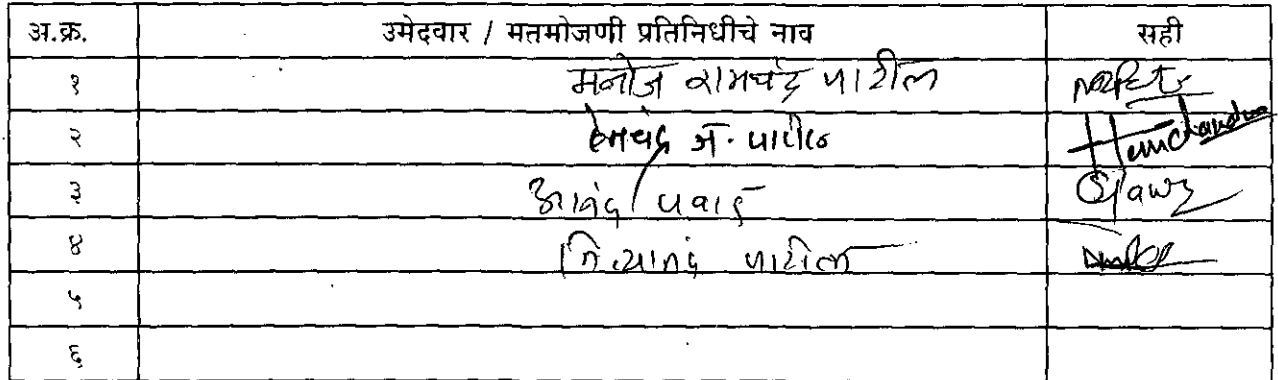 अ.क्र. उमेदवार / मतमोजणी प्रतिनिधीचे नाव सही
१ मनोज रामचंद्र पाटील
२ हेमचंद्र ज. पाटील Hemchandra
३ आनंद पवार
४ नित्यानंद पाटील
५
६